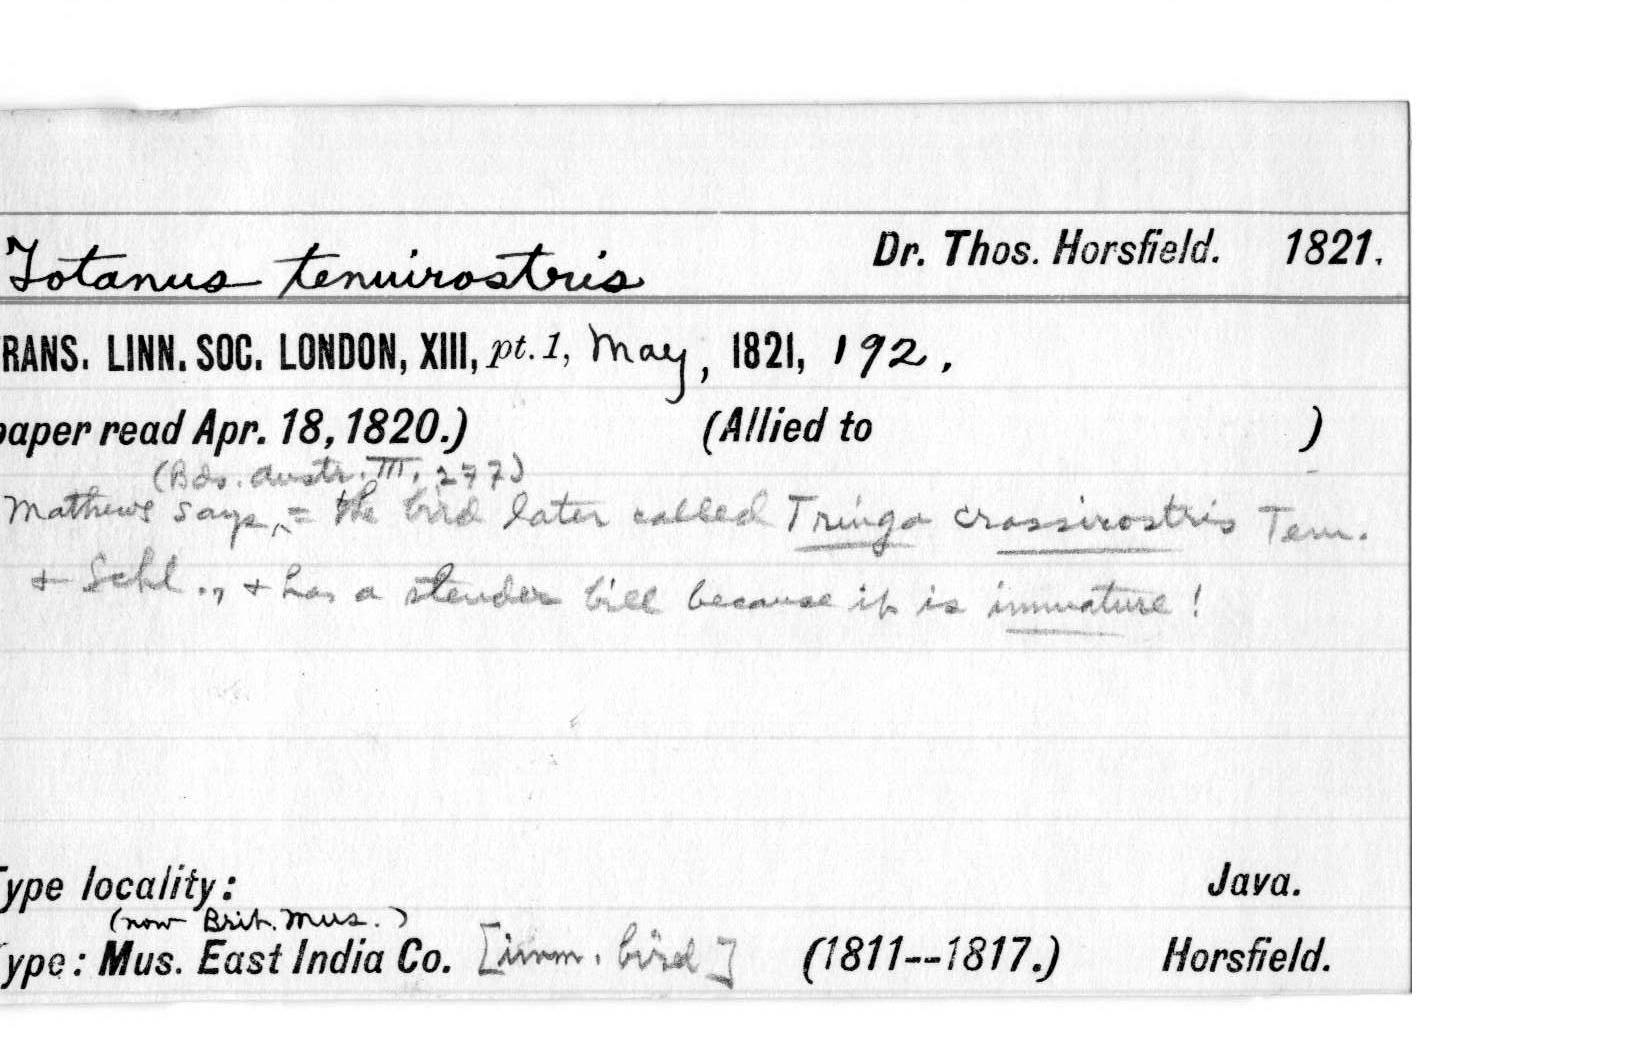 Totanus tenuirostris Dr. Thos. Horsfield. 1821.
RANS. LINN. SOC. LONDON, XIII, pt. 1, May, 1821, 192.
paper read Apr. 18, 1820.) (Allied to )
(Bds. Austr. III, 277)
Mathews says ^ = the bird later called Tringa crassirostris Tem.
+ Schl., + has a slender bill because it is immature!
Type locality: Java.
(now Brit. Mus.)
ype: Mus. East India Co. [imm. bird] (1811--1817.) Horsfield.